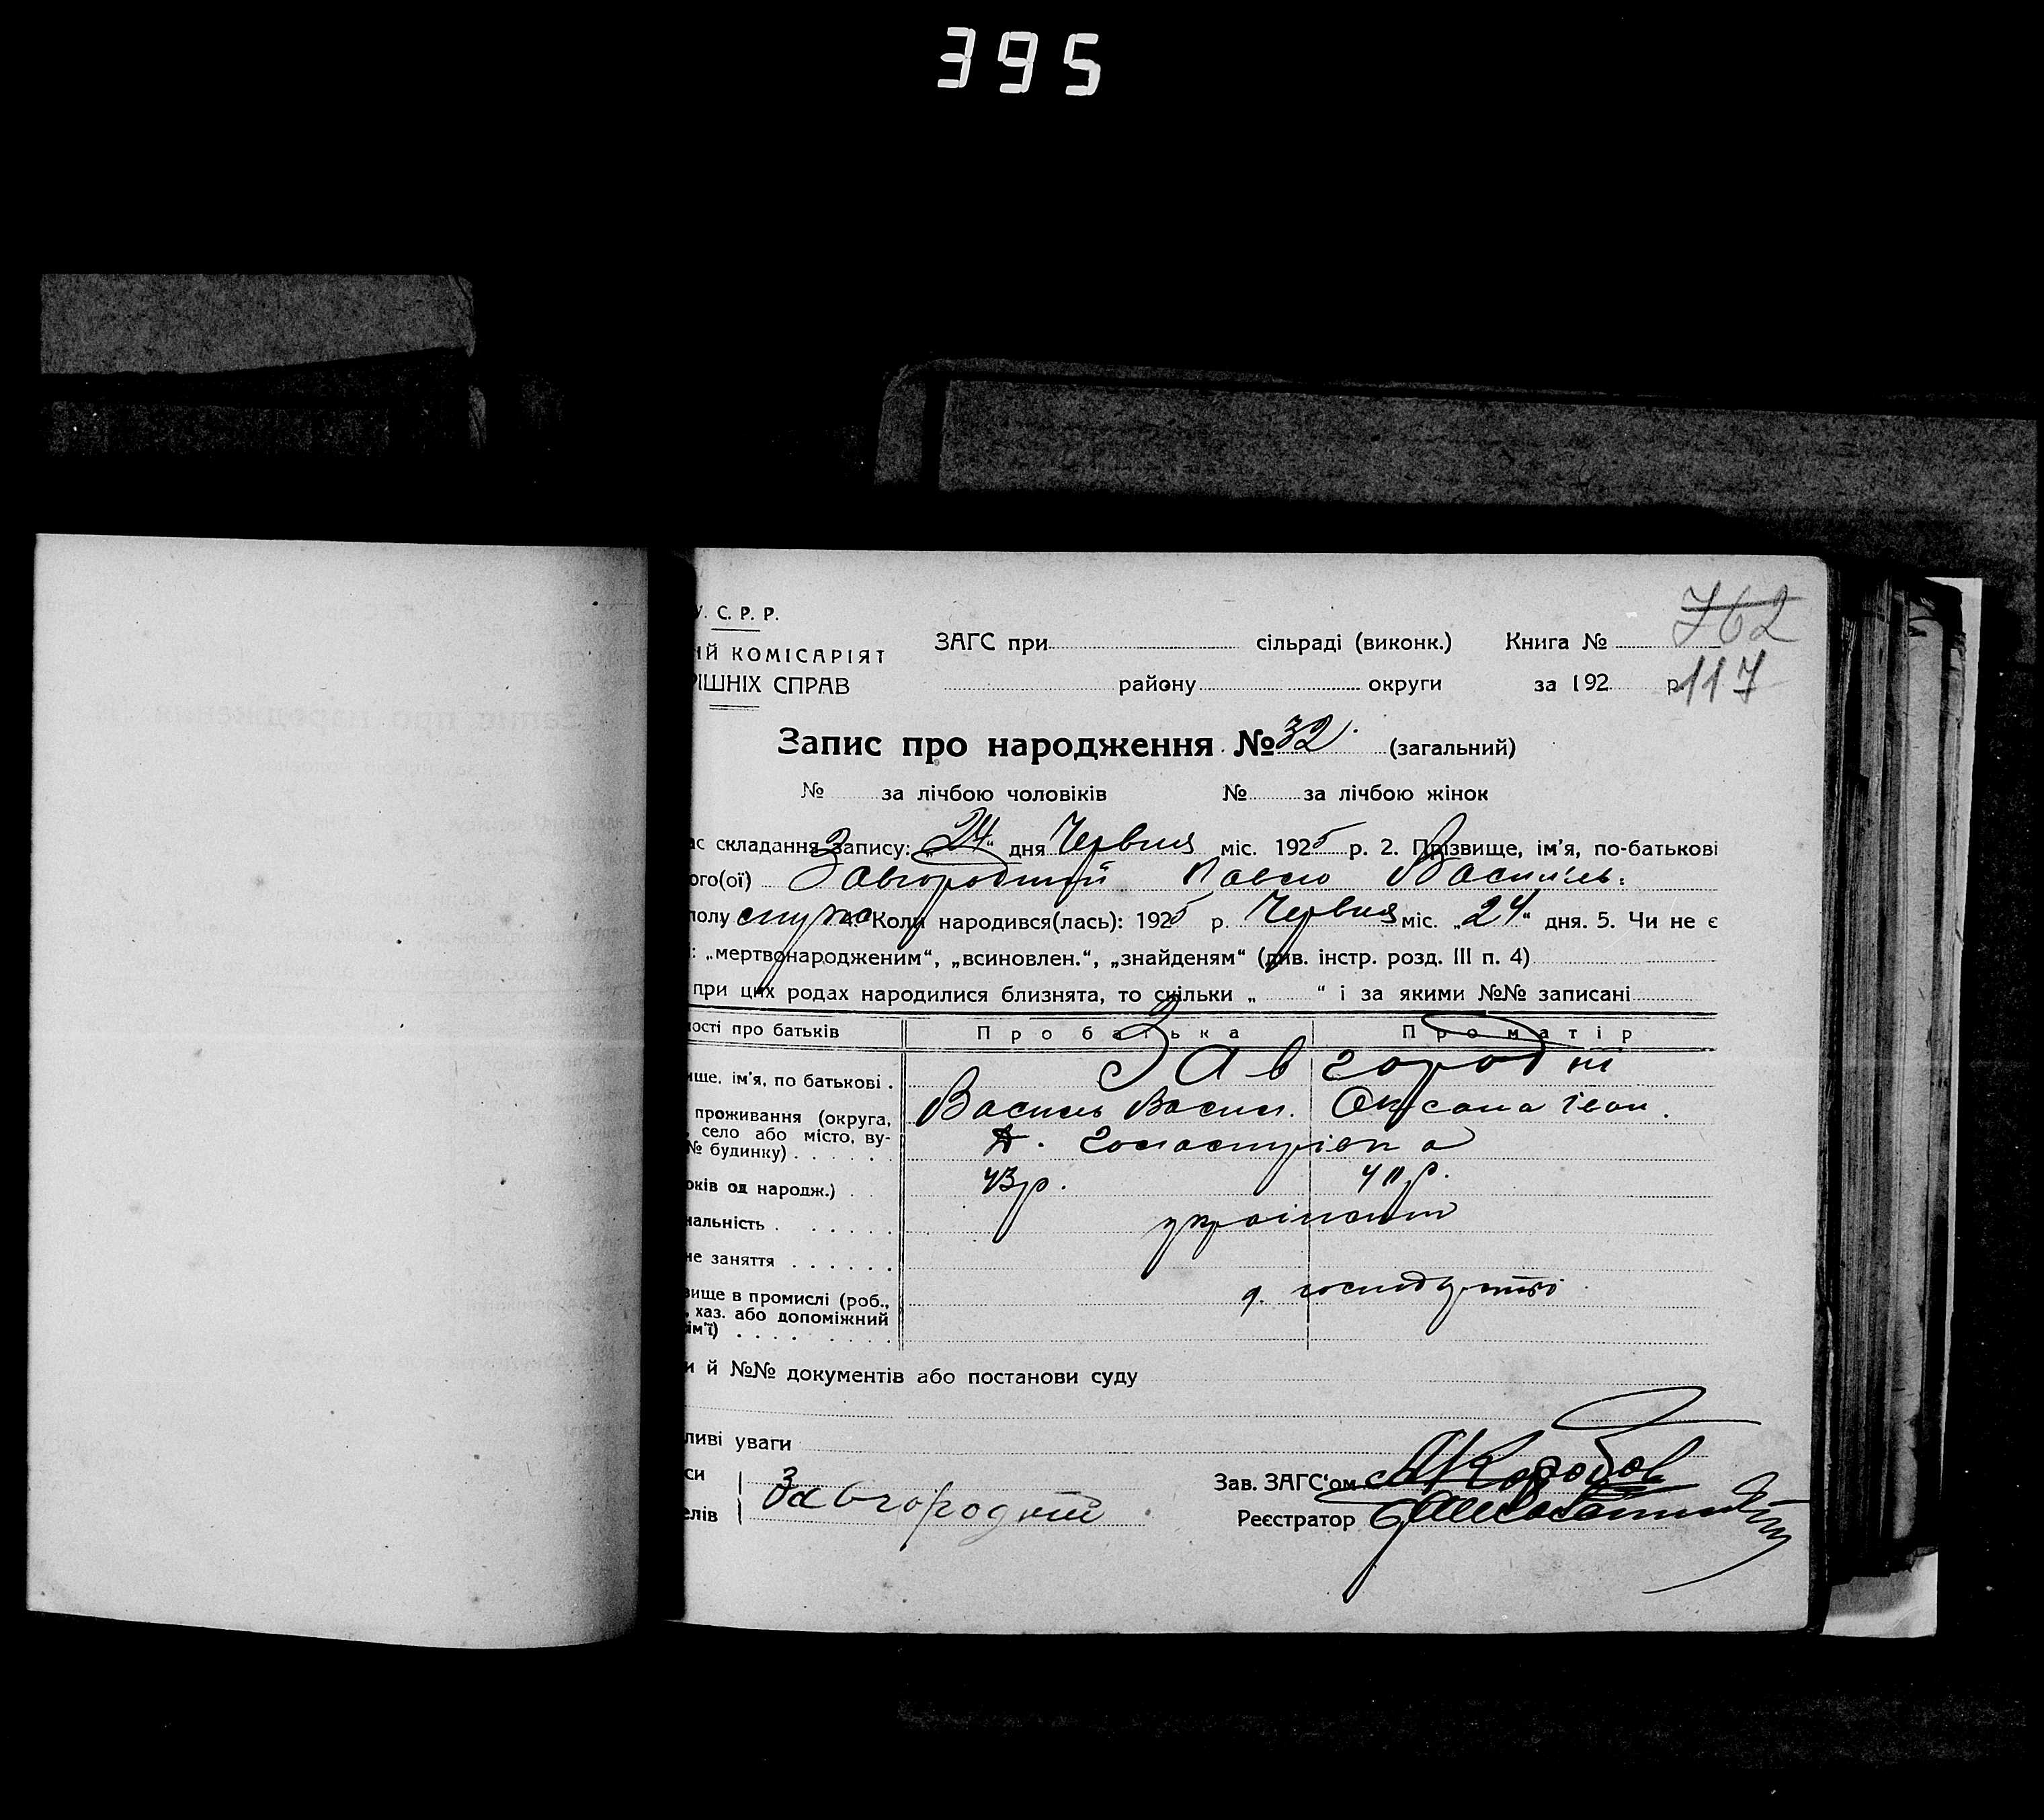 395
762
У. С. Р. Р.
ИЙ КОМІСАРІЯТ
РІШНІХ СПРАВ
ЗАГС при сільраді (виконк.) Книга №
району округи за 192 р.
117
Запис про народження № 32 (загальний)
№ за лічбою чоловіків № за лічбою жінок
ас складання запису: „24“ дня Червня міс. 1925 р. 2. Прізвище, ім'я, по-батькові
ого(ої) Завгородній Павло Василь:
полу 4. Коли народився(лась): 1925 р. Червня міс. „24“ дня. 5. Чи не є
: „мертвонародженим“, „всиновлен.“, „знайденям“ (див. інстр. розд. III п. 4)
при цих родах народилися близнята, то скільки „ “ і за якими №№ записані
ості про батьків Про батька Про матір
ище, ім'я, по батькові . Завгородні
Василь Васил. Оксана Іван.
проживання (округа,
село або місто, ву-
№ будинку) . . . . . .
оків од народж.) . . 43 р. 40 р.
нальність . . . . . . українці
не заняття . . . . . .
вище в промислі (роб.,
, хаз. або допоміжний
ім'ї) . . . . . . .
и й №№ документів або постанови суду
ливі уваги
си Зав. ЗАГС'ом
елів Завгородній Реєстратор